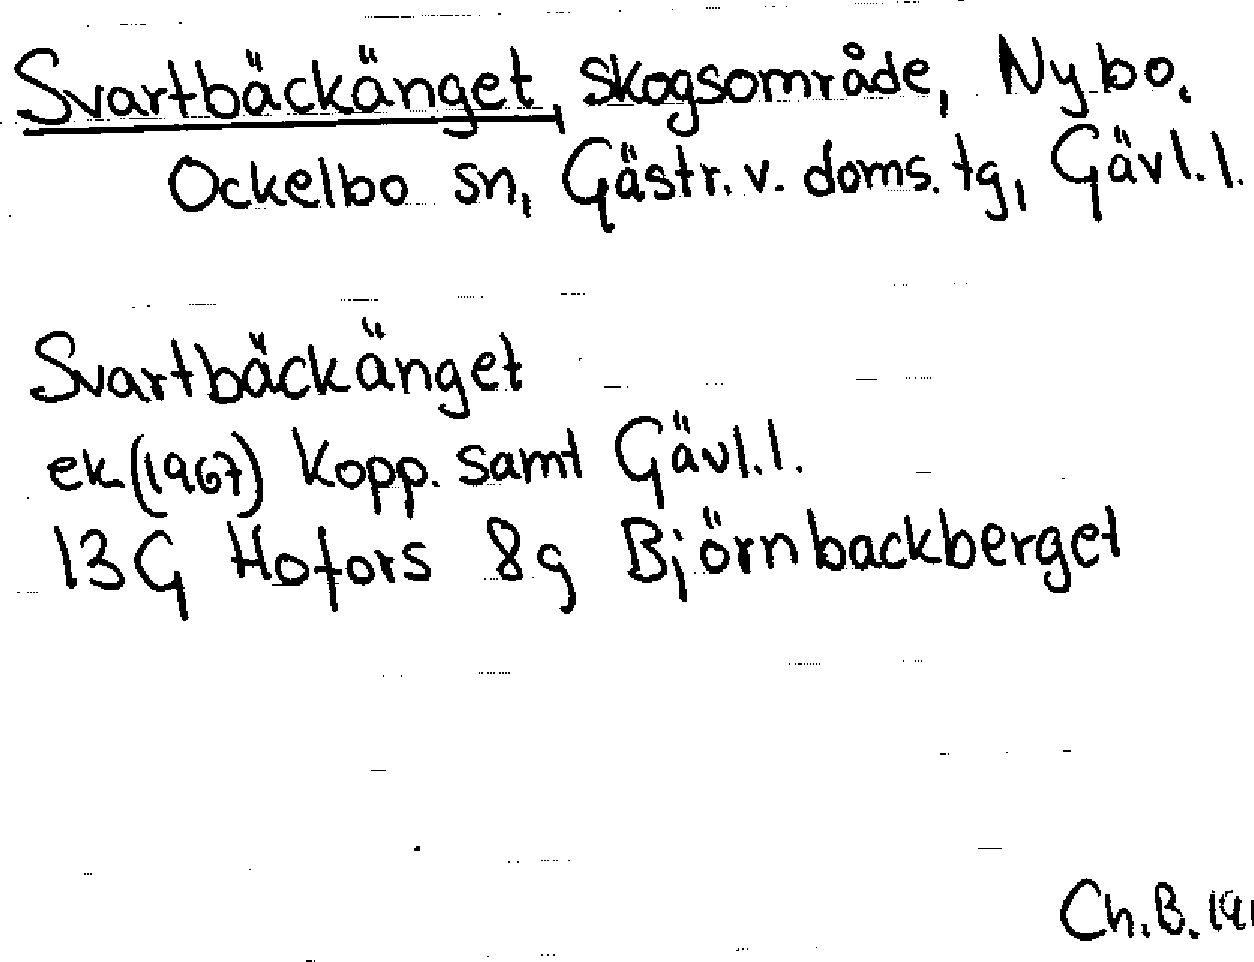 Svartbäckänget, skogsområde, Nybo.
Ockelbo sn, Gästr. v. doms. tg, Gävl. l.
Svartbäckänget
ek. (1967) Kopp. samt Gävl. l.
13G Hofors 8g Björnbackberget
Ch. B.